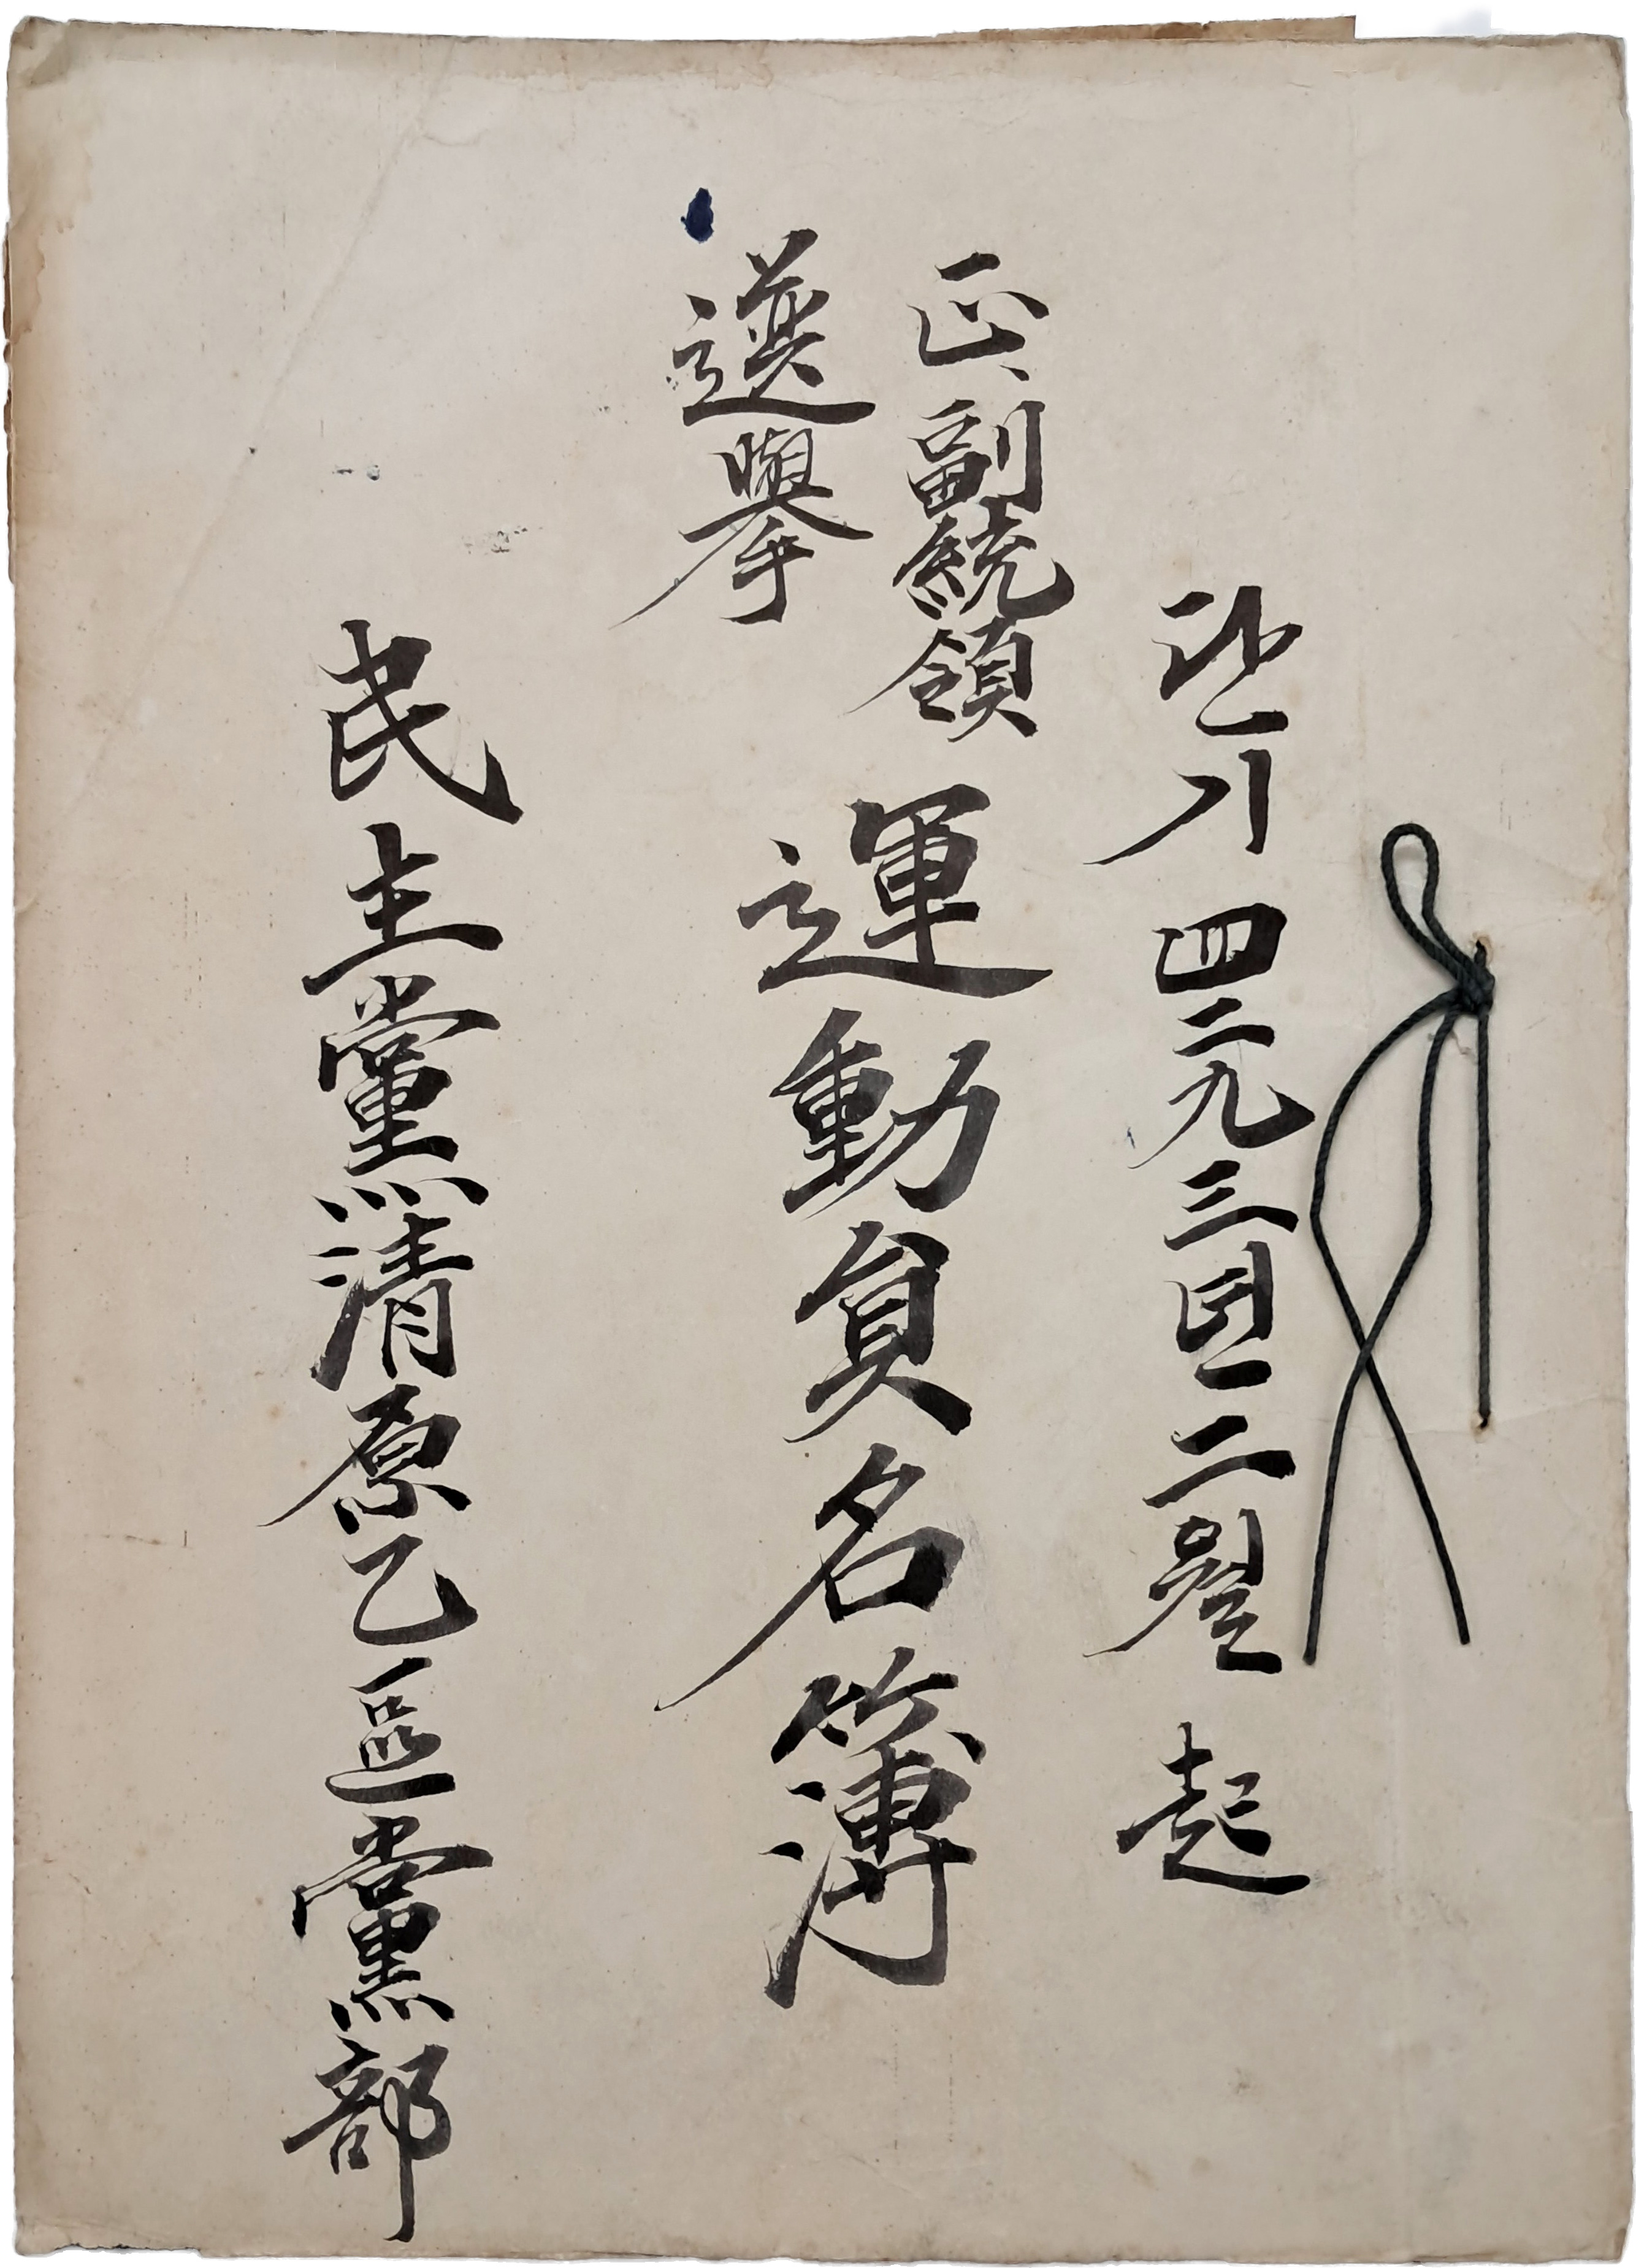 단기四二九三년二월 起
正、副統領
選擧
運動員名簿
民主黨清原乙區黨部